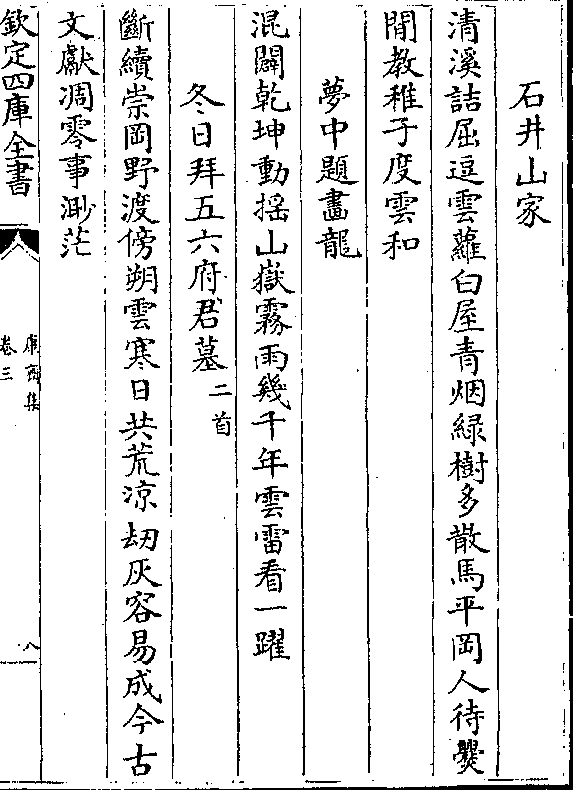 石井山家
清溪詰屈逗雲蘿白屋青烟緑樹多散馬平岡人待爨
閒教稚子度雲和
夢中題畫龍
混闢乾坤動揺山嶽霧雨幾千年雲雷看一躍
冬日拜五六府君墓二首
斷續崇岡野渡傍朔雲寒日共荒凉刼灰容易成今古
文獻凋零事渺茫
欽定四庫全書
集
卷三
八